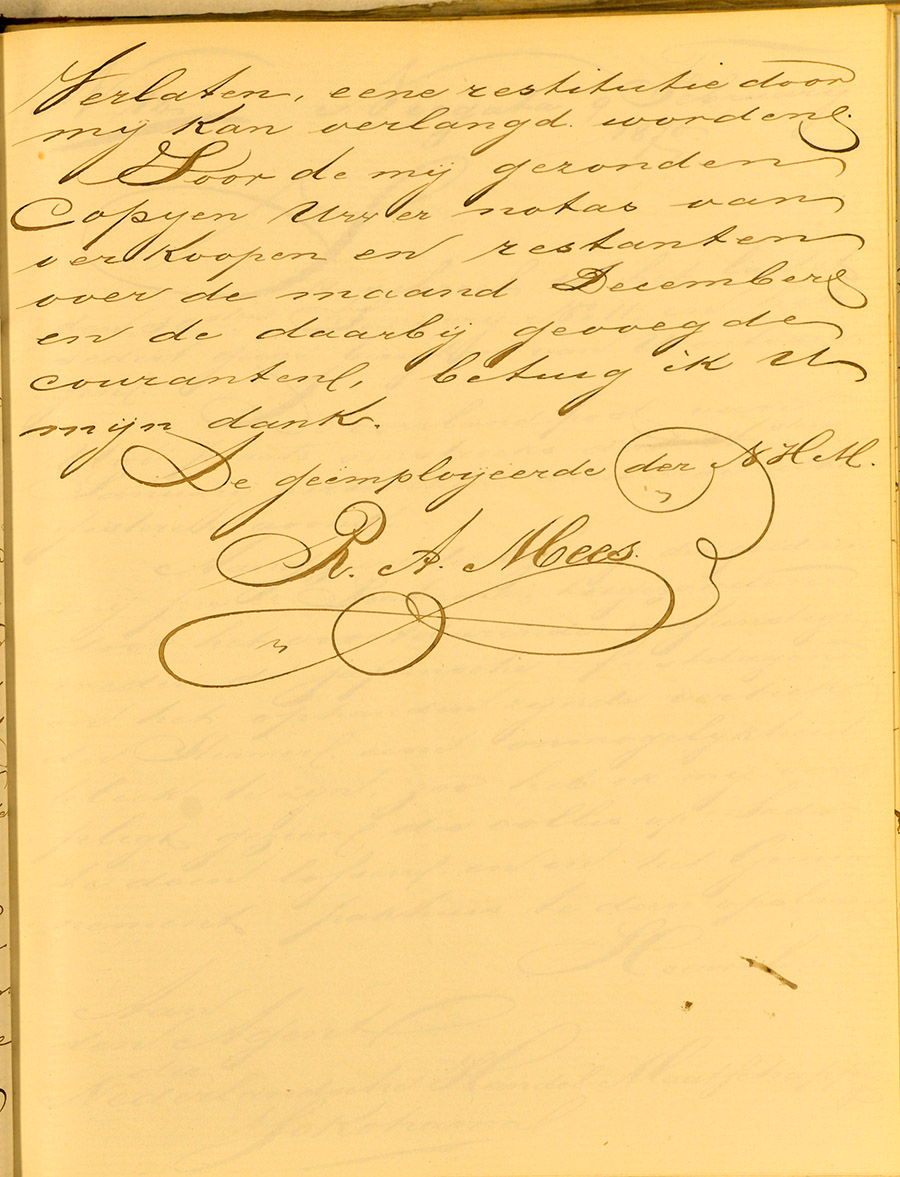 Verlaten, eene restitutie door
mij kan verlangd worden.
Voor de mij gezonden
Copyen Uwer notas van
verkoopen en restanten
over de maand December
en de daarbij gevoegde
couranten, betuig ik U
mijn dank.
De geëmployeerde der N.H.M.
R. A. Mees.